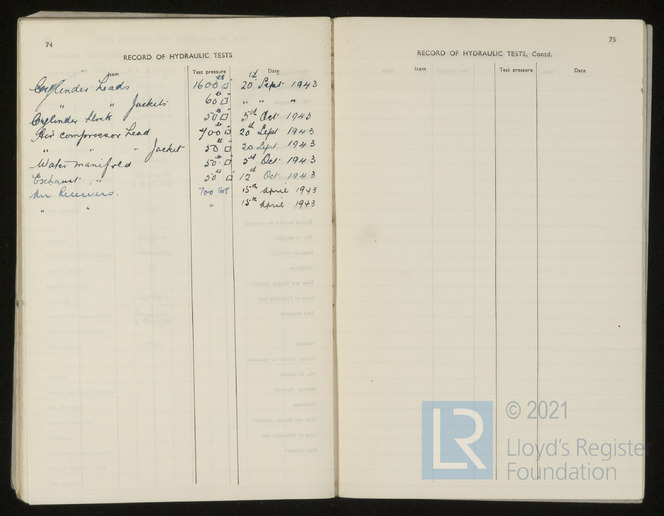 74
RECORD OF HYDRAULIC TESTS
Item Test pressure Date
Cylinder Heads 1600 lb □" 20th Sept 1943
" " Jackets 60 lb □" " " "
Cylinder Block 50 lb □" 5th Oct 1943
Air Compressor Head 700 lb □" 20th Sept 1943
" " " Jacket 50 lb □" 20 Sept 1943
Water Manifold 50 lb □" 5th Oct 1943
Exhaust " 50 lb □" 12th Oct 1943
Air Receivers 700 lbs 15th April 1943
" " " 15th April 1943
75
RECORD OF HYDRAULIC TESTS, Contd.
Item Test pressure Date
LR © 2021
Lloyd's Register
Foundation